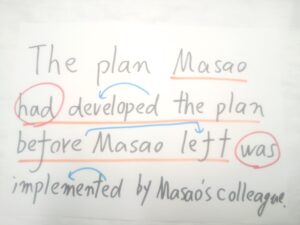 The plan Masao
had developed the plan
before Masao left was
implemented by Masao's colleague.